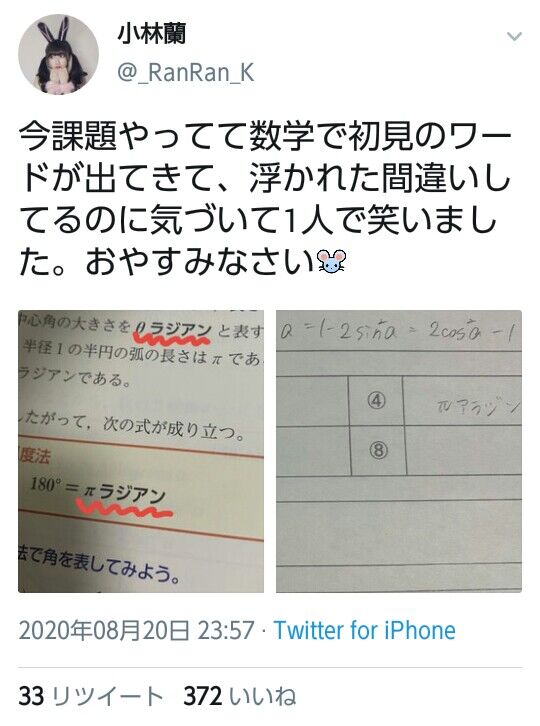 小林蘭
@_RanRan_K
今課題やってて数学で初見のワー
ドが出てきて、浮かれた間違いし
てるのに気づいて1人で笑いまし
た。おやすみなさい🐭
中心角の大きさを θ ラジアン と表す
半径1の半円の弧の長さは π であ
ラジアンである。
したがって，次の式が成り立つ。
度法
180° = π ラジアン
法で角を表してみよう。
a = 1-2sin²a = 2cos²a -1
④
πアラジン
⑧
2020年08月20日 23:57 · Twitter for iPhone
33 リツイート 372 いいね